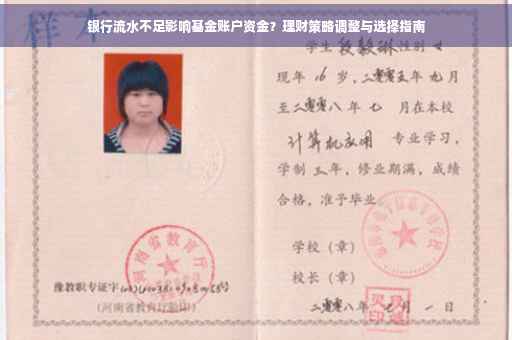 银行流水不足影响基金账户资金？理财策略调整与选择指南
样本
学生 段毅琳 性别 女
现年 16 岁，二零零五年 九月
至二零零八年 七 月在本校
计算机应用 专业学习，
学制 三 年，修业期满，成绩
合格，准予毕业
学校（章）
校长（章）
二零零八年 月 一 日
河南省教育厅
豫教职专证字
（河南省教育厅验印）